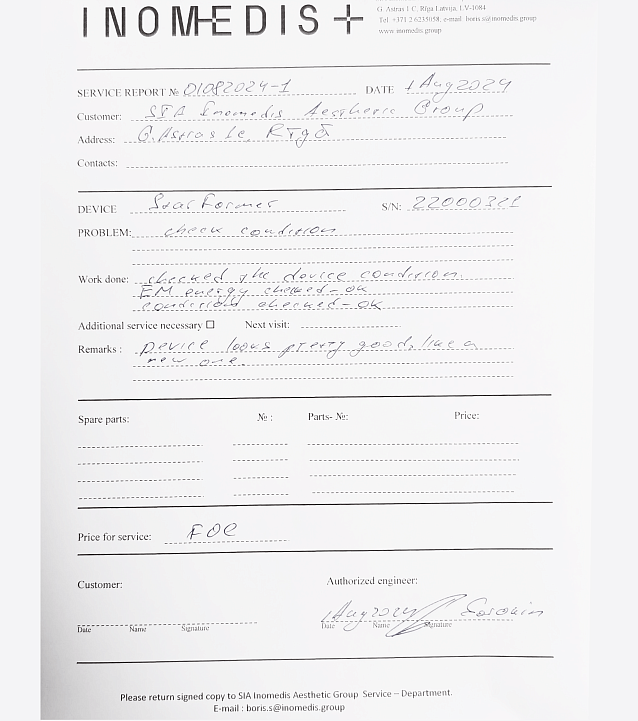 INOMEDIS+
G. Astras 1 C, Rīga Latvija, LV-1084
Tel +371 2 6235058, e-mail boris.s@inomedis.group
www.inomedis.group
SERVICE REPORT № 01082024-1 DATE 1 Aug 2024
Customer: SIA Inomedis Aesthetic Group
Address: G. Astras 1c, Rīgā
Contacts:
DEVICE StarFormer S/N: 22000321
PROBLEM: check condition
Work done: checked the device condition
EM energy checked - ok
conditions checked - ok
Additional service necessary ☐ Next visit:
Remarks : Device looks pretty good, like a
new one.
Spare parts: №: Parts- №: Price:
Price for service: FOC
Customer: Authorized engineer:
1 Aug 2024 Sorokin
Date Name Signature Date Name Signature
Please return signed copy to SIA Inomedis Aesthetic Group Service – Department.
E-mail : boris.s@inomedis.group